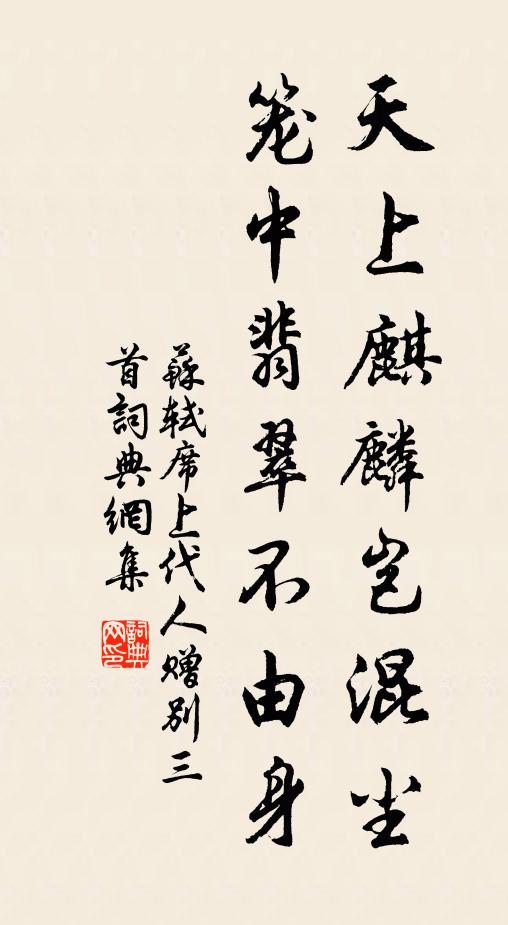 天上麒麟岂混尘
笼中翡翠不由身
蘇軾席上代人赠别三
首詞典網集
詞典
网印